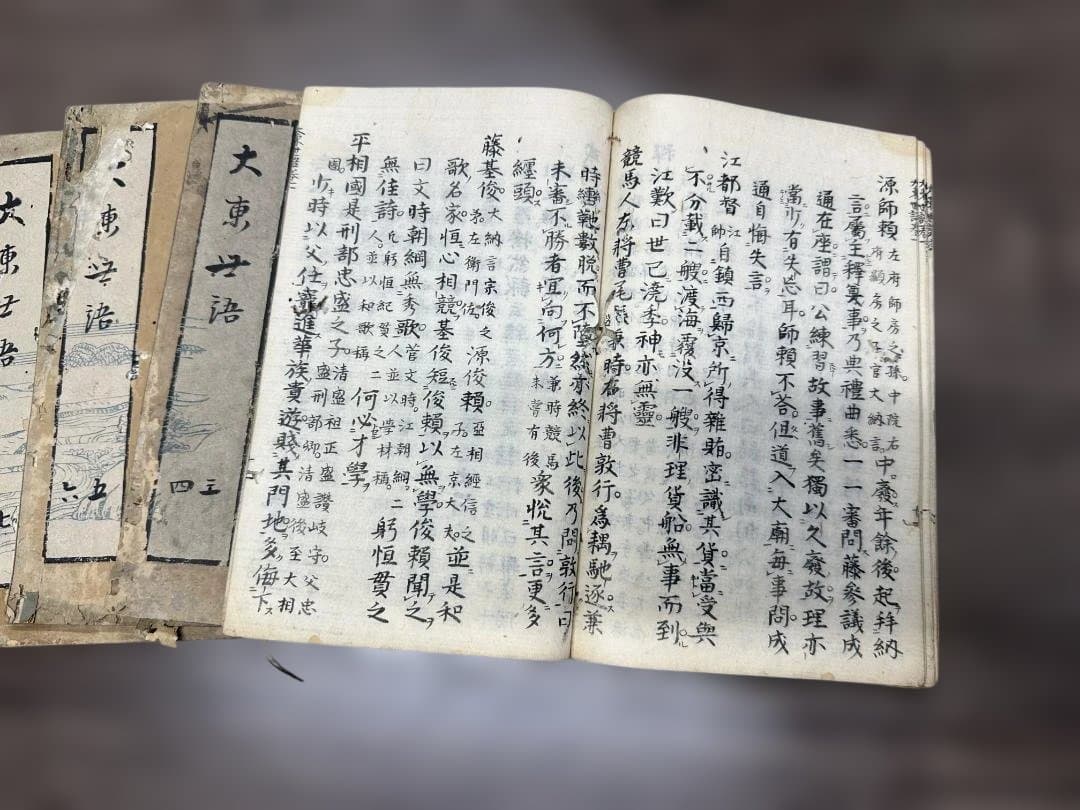 源師頼左府師房之孫中院右
府顕房之子官大納言中廢年餘後起拜納
言屬王釋奠事乃典禮曲悉一一審問藤參議成
通在座謂曰公練習故事舊矣獨以久廢故理亦
當少有失忘耳師頼不荅但道入大廟毎事問成
通自悔失言
江都督江師自鎮西歸京所得雜賄密識其貨當受與
不分載二艘渡海覆没一艘非理貨船無事而到
江歎曰世已澆季神亦無靈
競馬人左將曹尾張兼時右將曹敦行爲耦馳逐兼
時轡靶數脱而不墮然亦終以此後乃問敦行曰
未審不勝者宜向何方兼時競馬
未嘗有後衆悦其言更多
纏頭
藤基俊大納言宗俊之
弟左衞門佐源俊頼亞相經信之
子左京大夫並是和
歌名家恒心相競基俊短俊頼以無學俊頼聞之
曰文時朝綱無秀歌菅文時江朝綱二
人並以學材稱躬恒貫之
無佳詩凡躬恒紀貫之二
人並以和歌稱何必才學
平相國是刑部忠盛之子清盛祖正盛讃岐守父忠
盛刑部卿清盛後至大相
國少時以父仕寵進華族賚遊賤其門地多侮卞
大東世語
三
四
大東世語
五
六
大東世語
七